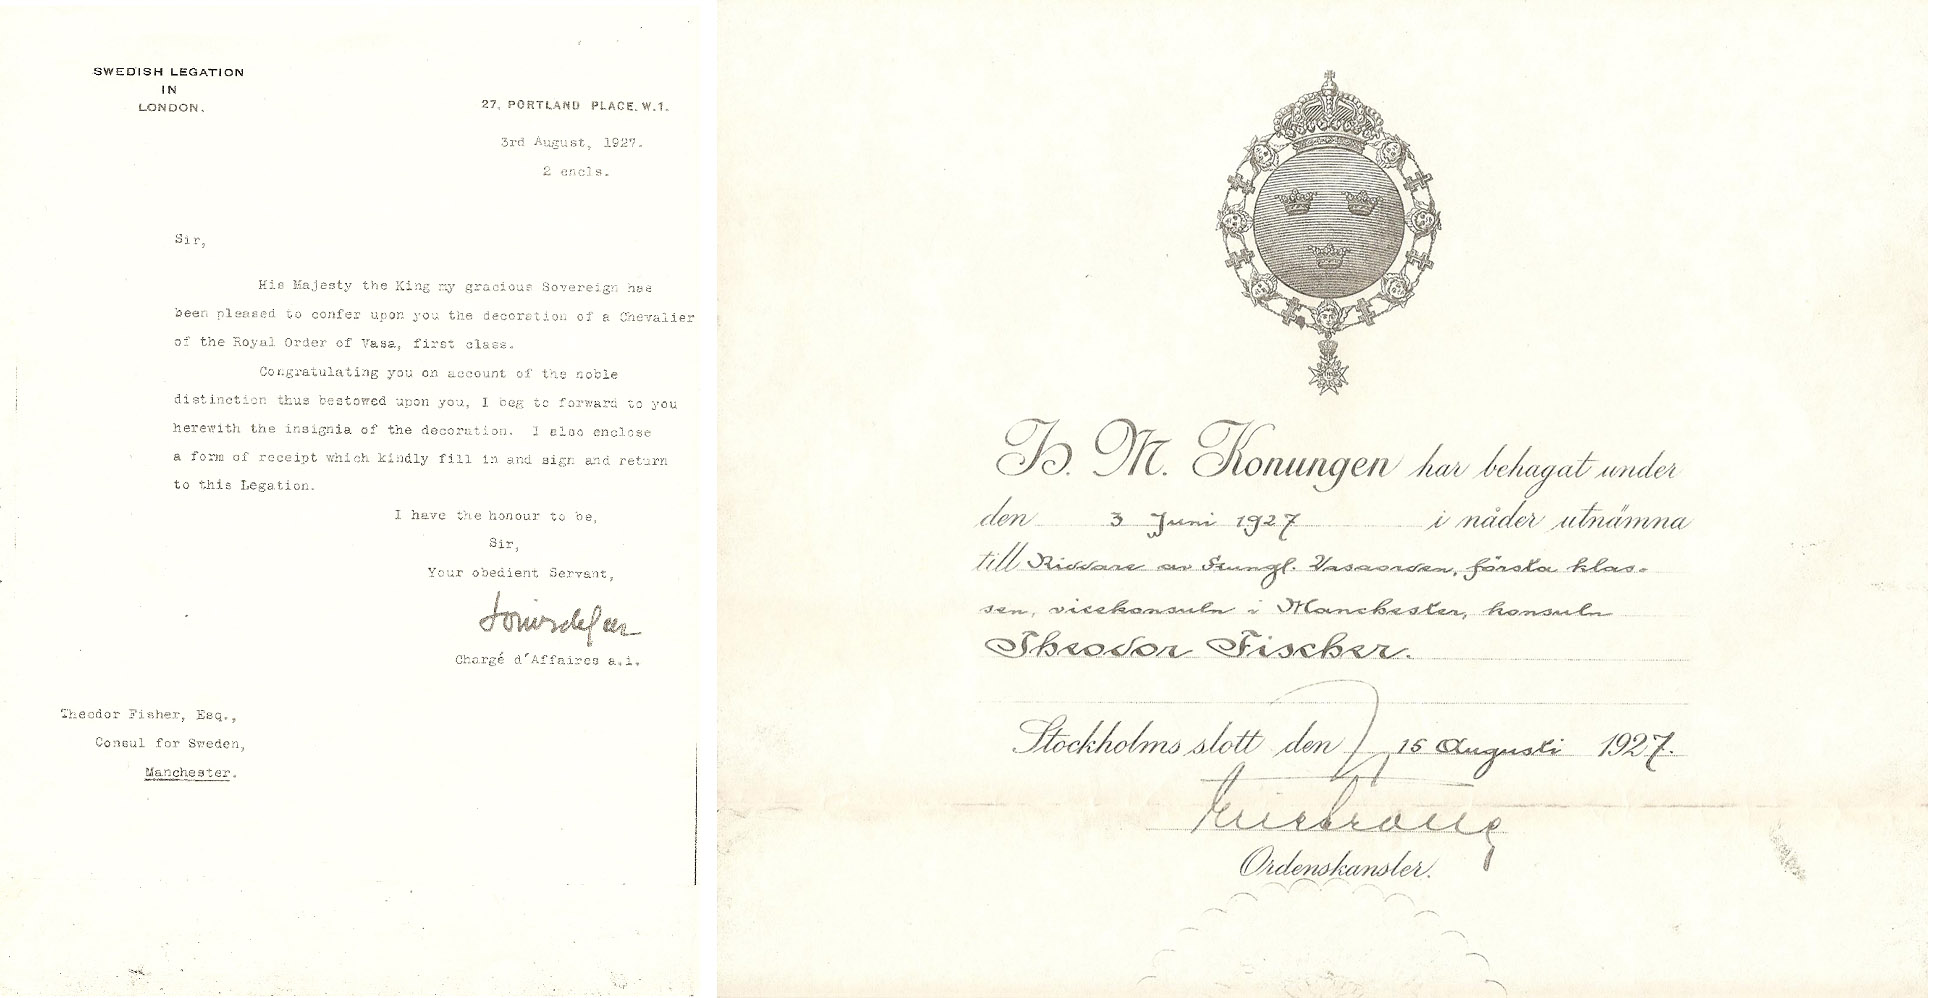 SWEDISH LEGATION
IN
LONDON.
27, PORTLAND PLACE. W.1.
3rd August, 1927.
2 encls.
Sir,
His Majesty the King my gracious Sovereign has
been pleased to confer upon you the decoration of a Chevalier
of the Royal Order of Vasa, first class.
Congratulating you on account of the noble
distinction thus bestowed upon you, I beg to forward to you
herewith the insignia of the decoration. I also enclose
a form of receipt which kindly fill in and sign and return
to this Legation.
I have the honour to be,
Sir,
Your obedient Servant,
Chargé d'Affaires a.i.
Theodor Fisher, Esq.,
Consul for Sweden,
Manchester.
H. M. Konungen har behagat under
den 3 Juni 1927 i nåder utnämna
till Riddare av Kungl. Vasaorden, första klas-
sen, vicekonsuln i Manchester, konsuln
Theodor Fischer.
Stockholms slott den 15 Augusti 1927.
Ordenskansler.